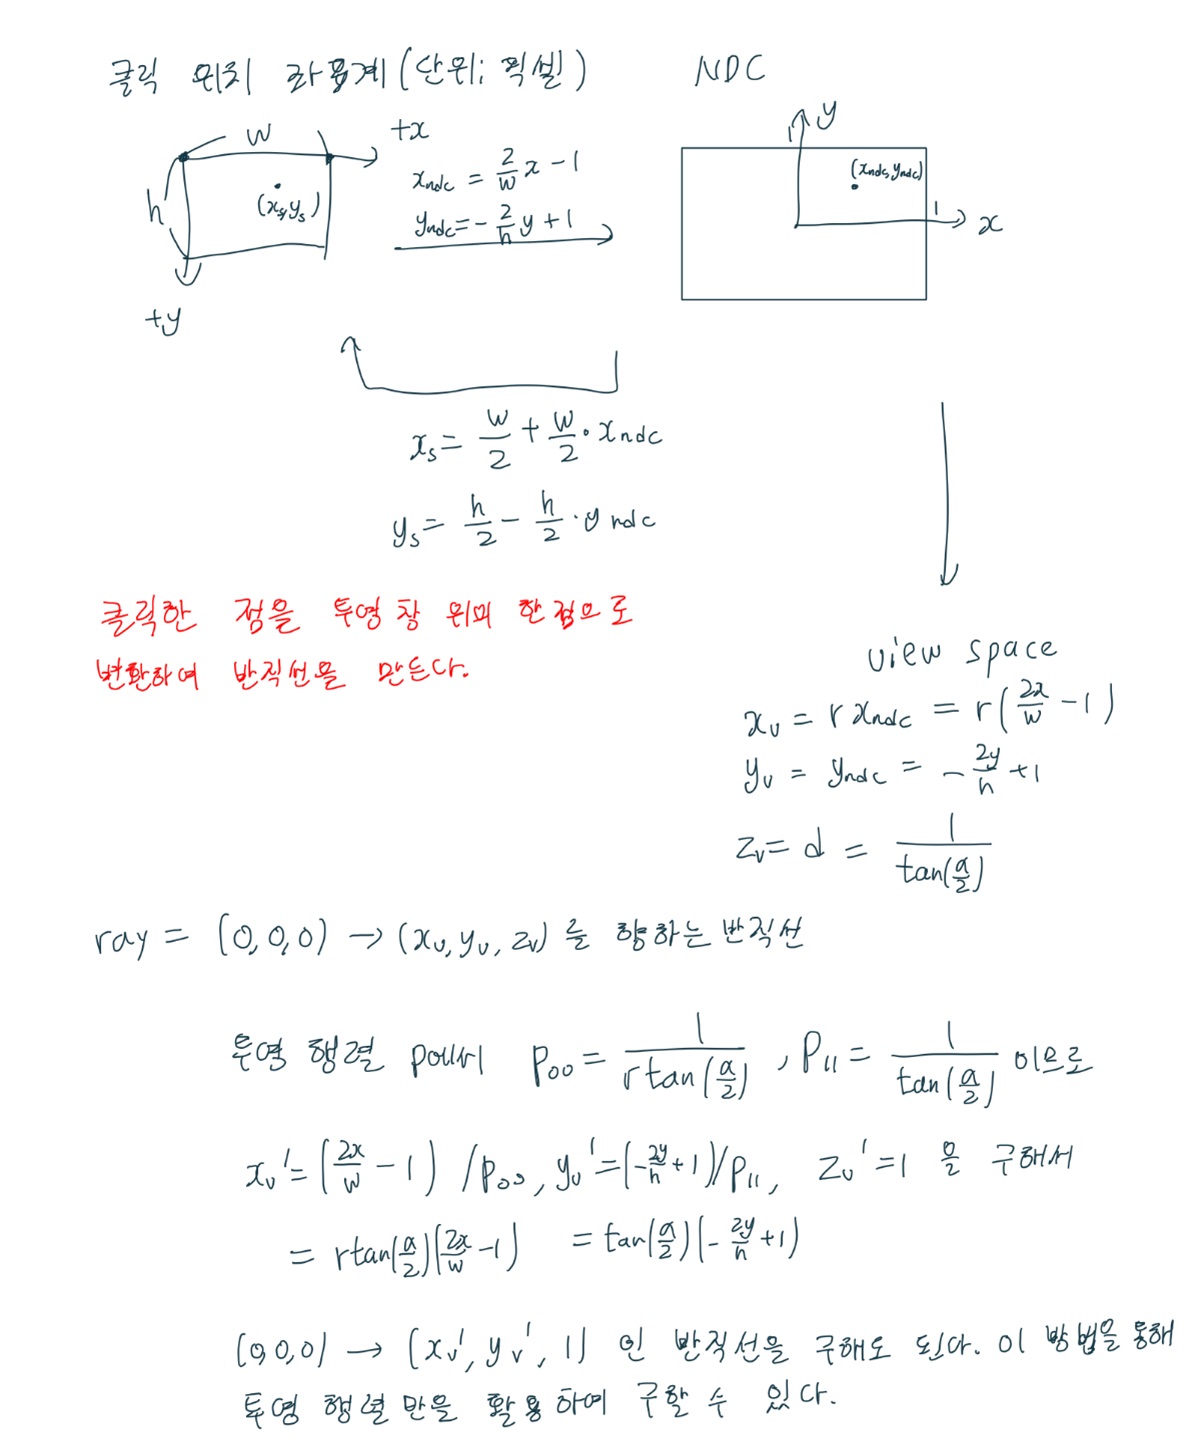 클릭 위치 좌표계(단위: 픽셀)
NDC
w
+x
h
(xₛ, yₛ)
+y
x_ndc = 2/w x - 1
y_ndc = - 2/h y + 1
y
1
(x_ndc, y_ndc)
1
x
xₛ = w/2 + w/2 · x_ndc
yₛ = h/2 - h/2 · y_ndc
클릭한 점을 투영 창 위의 한 점으로
변환하여 반직선을 만든다.
view space
x_v = r x_ndc = r(2x/w - 1)
y_v = y_ndc = - 2y/h + 1
z_v = d = 1/tan(α/2)
ray = (0, 0, 0) → (x_v, y_v, z_v) 를 향하는 반직선
투영 행렬 P에서 P₀₀ = 1/(r tan(α/2)) , P₁₁ = 1/tan(α/2) 이므로
x_v' = (2x/w - 1) / P₀₀, y_v' = (-2y/h + 1) / P₁₁, z_v' = 1 을 구해서
= r tan(α/2)(2x/w - 1) = tan(α/2)(- 2y/h + 1)
(0, 0, 0) → (x_v', y_v', 1) 인 반직선을 구해도 된다. 이 방법을 통해
투영 행렬만을 활용하여 구할 수 있다.